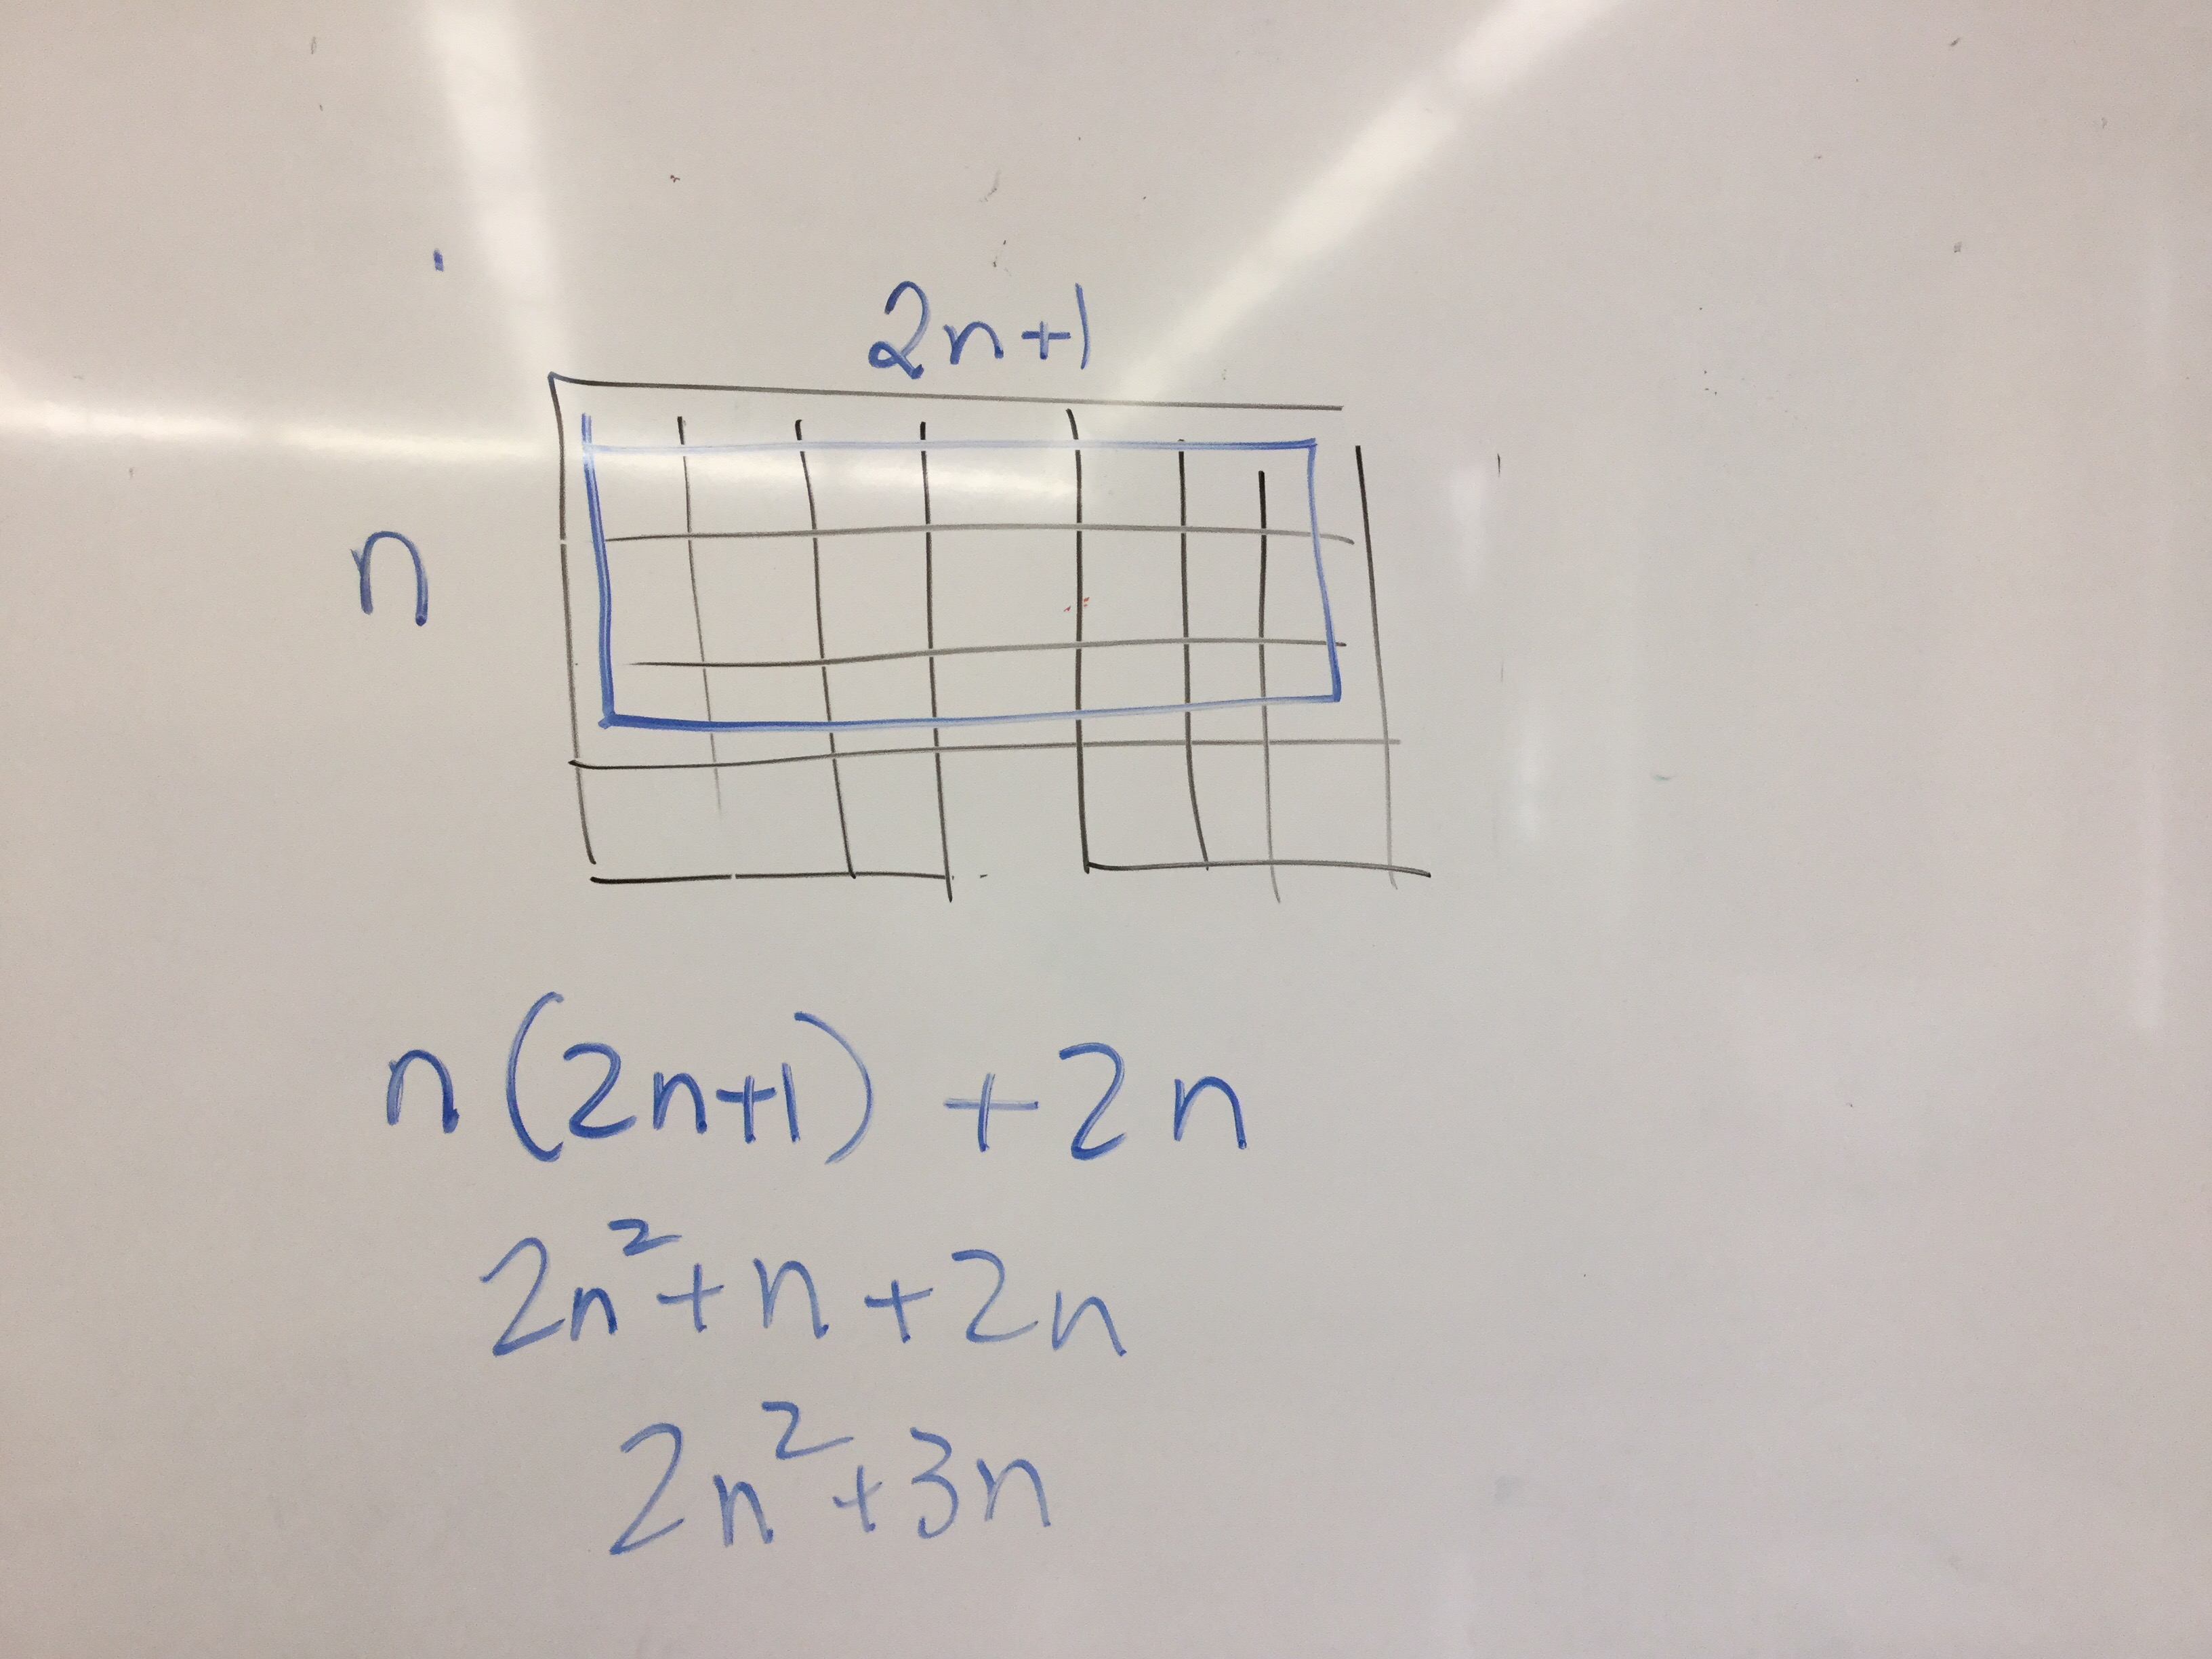 2n+1
n
n(2n+1) + 2n
2n²+n+2n
2n²+3n